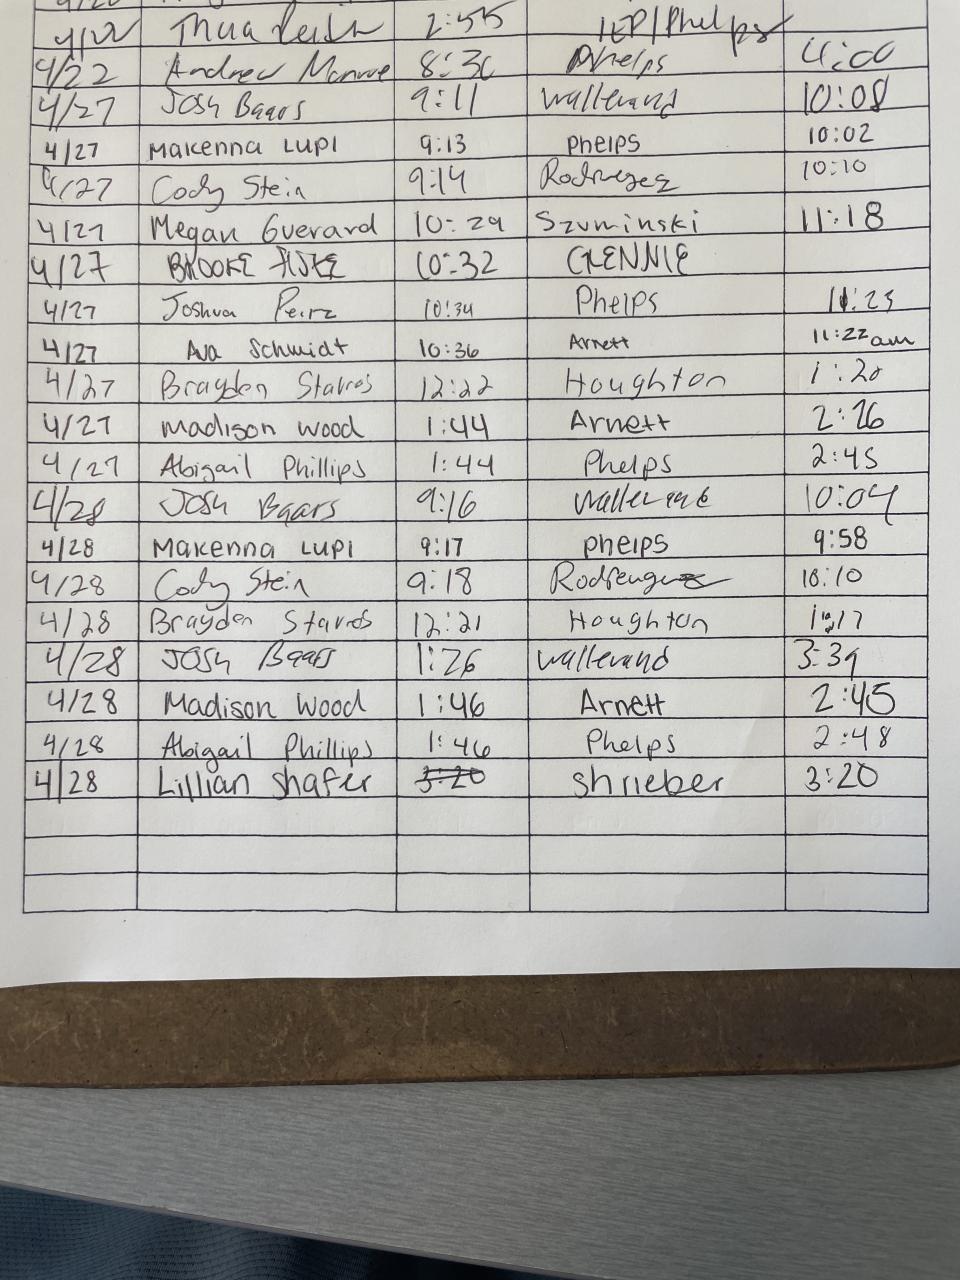 4/22 2:55 IEP/Phelps
4/22 Andrew Monroe 8:30 Phelps 4:00
4/27 Josh Baars 9:11 Wallerand 10:08
4/27 Makenna Lupi 9:13 Phelps 10:02
4/27 Cody Stein 9:14 Rodriegez 10:10
4/27 Megan Guerard 10:29 Szuminski 11:18
4/27 BROOKE 10:32 GLENNIE
4/27 Joshua 10:34 Phelps 11:23
4/27 Ava Schmidt 10:36 Arnett 11:22am
4/27 Brayden Stavros 12:22 Houghton 1:20
4/27 Madison Wood 1:44 Arnett 2:26
4/27 Abigail Phillips 1:44 Phelps 2:45
4/28 Josh Baars 9:16 Wallerand 10:04
4/28 Makenna Lupi 9:17 Phelps 9:58
4/28 Cody Stein 9:18 10:10
4/28 Brayden Stavros 12:21 Houghton 1:17
4/28 Josh Baars 1:26 Wallerand 3:39
4/28 Madison Wood 1:46 Arnett 2:45
4/28 Abigail Phillips 1:46 Phelps 2:48
4/28 Lillian Shafer 3:20 Shrieber 3:20